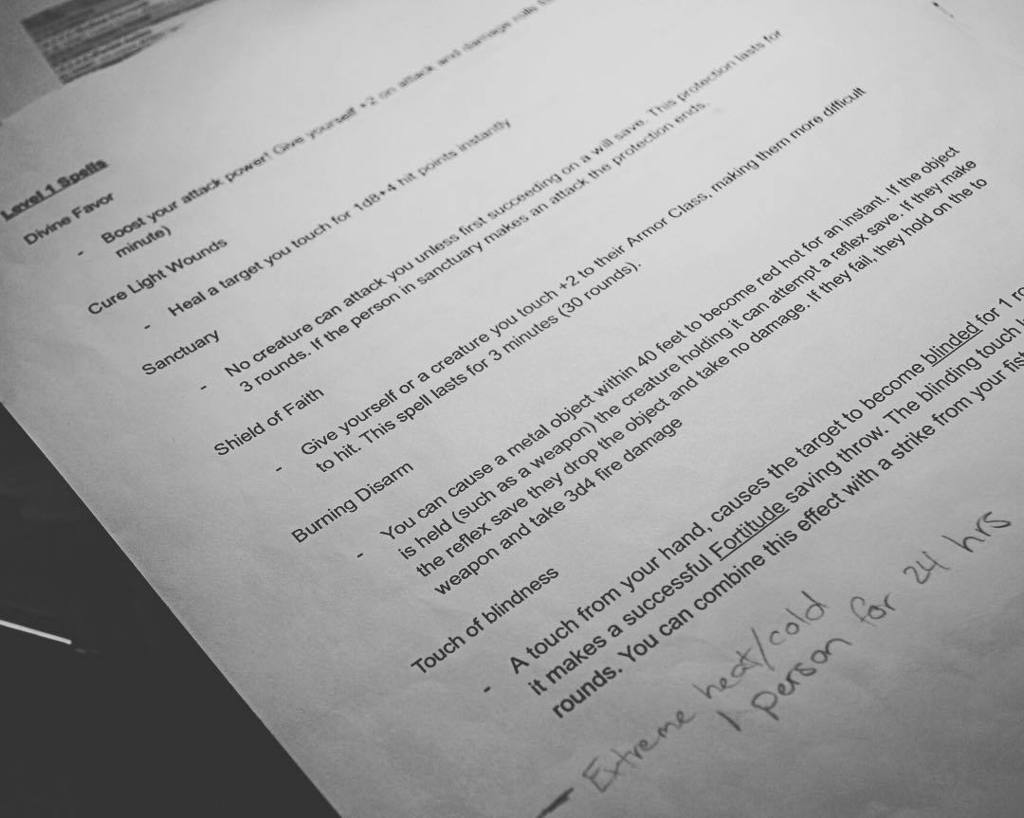 Level 1 Spells
Divine Favor
- Boost your attack power! Give yourself +2 on attack and damage rolls
minute)
Cure Light Wounds
- Heal a target you touch for 1d8+4 hit points instantly
Sanctuary
- No creature can attack you unless first succeeding on a will save. This protection lasts for
3 rounds. If the person in sanctuary makes an attack the protection ends.
Shield of Faith
- Give yourself or a creature you touch +2 to their Armor Class, making them more difficult
to hit. This spell lasts for 3 minutes (30 rounds).
Burning Disarm
- You can cause a metal object within 40 feet to become red hot for an instant. If the object
is held (such as a weapon) the creature holding it can attempt a reflex save. If they make
the reflex save they drop the object and take no damage. If they fail, they hold on the to
weapon and take 3d4 fire damage
Touch of blindness
- A touch from your hand, causes the target to become blinded for 1
it makes a successful Fortitude saving throw. The blinding touch
rounds. You can combine this effect with a strike from your fist
- Extreme heat/cold
1 person for 24 hrs